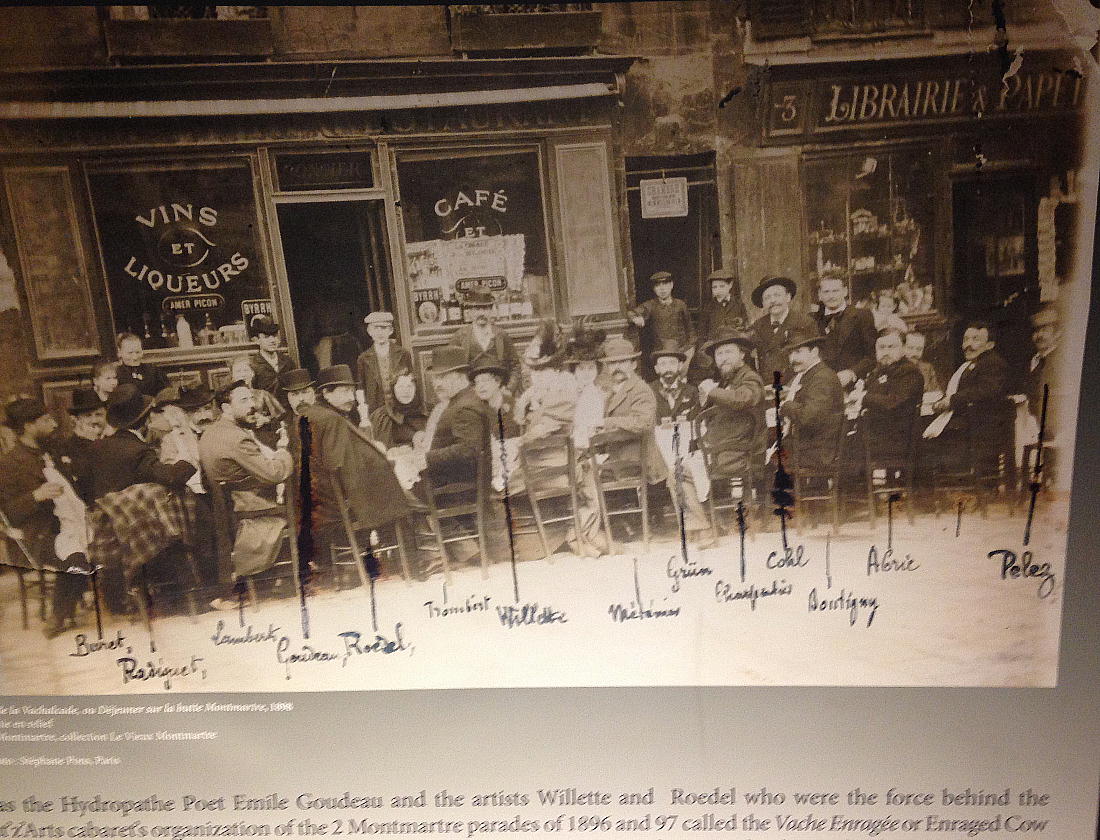 -3 LIBRAIRIE & PAPET
VINS
ET
LIQUEURS
AMER PICON
BYRRH
CAFÉ
ET
AMER PICON
BYRRH
Buret,
Radiguet,
Lambert
Goudeau,
Roedel,
Trombert
Willette
Méténier
Grün
Charpentier
Cohl
Boutigny
Abric
Pelez
de la Vachalcade, ou Déjeuner sur la butte Montmartre, 1898
Montmartre, collection Le Vieux Montmartre
Stéphane Pons, Paris
as the Hydropathe Poet Emile Goudeau and the artists Willette and Roedel who were the force behind the
z'Arts cabaret's organization of the 2 Montmartre parades of 1896 and 97 called the Vache Enragée or Enraged Cow